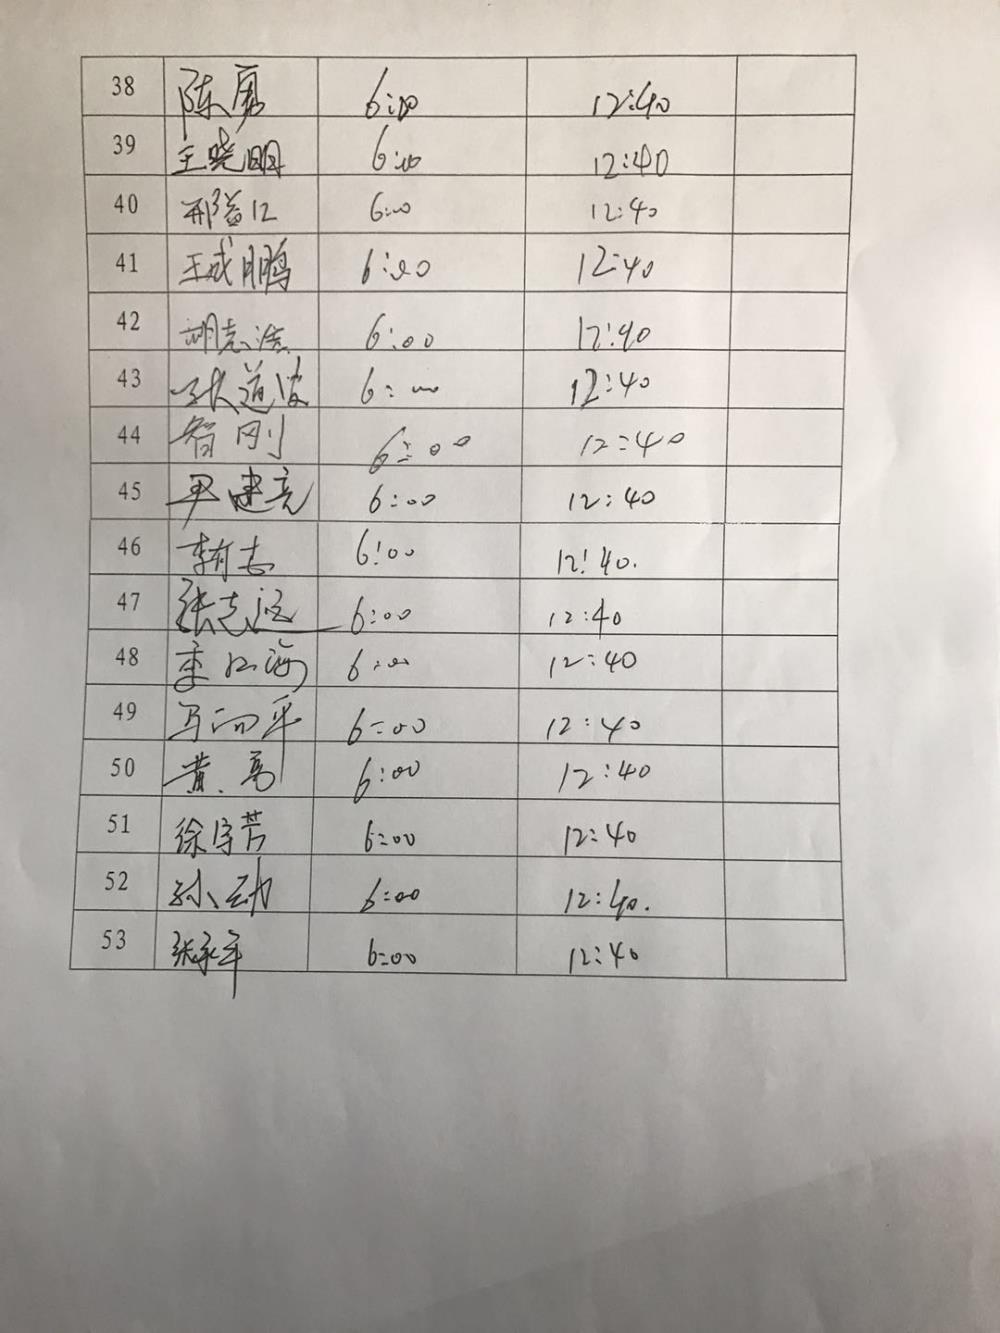 38 陈勇 6:00 12:40
39 王晓明 6:00 12:40
40 邢益江 6:00 12:40
41 王成鹏 6:00 12:40
42 胡志浩 6:00 12:40
43 张道波 6:00 12:40
44 智刚 6:00 12:40
45 尹建亮 6:00 12:40
46 李有志 6:00 12:40.
47 张志远 6:00 12:40
48 李江海 6:00 12:40
49 马向平 6:00 12:40
50 黄亮 6:00 12:40
51 徐宇芳 6:00 12:40
52 孙动 6:00 12:40.
53 张永军 6:00 12:40